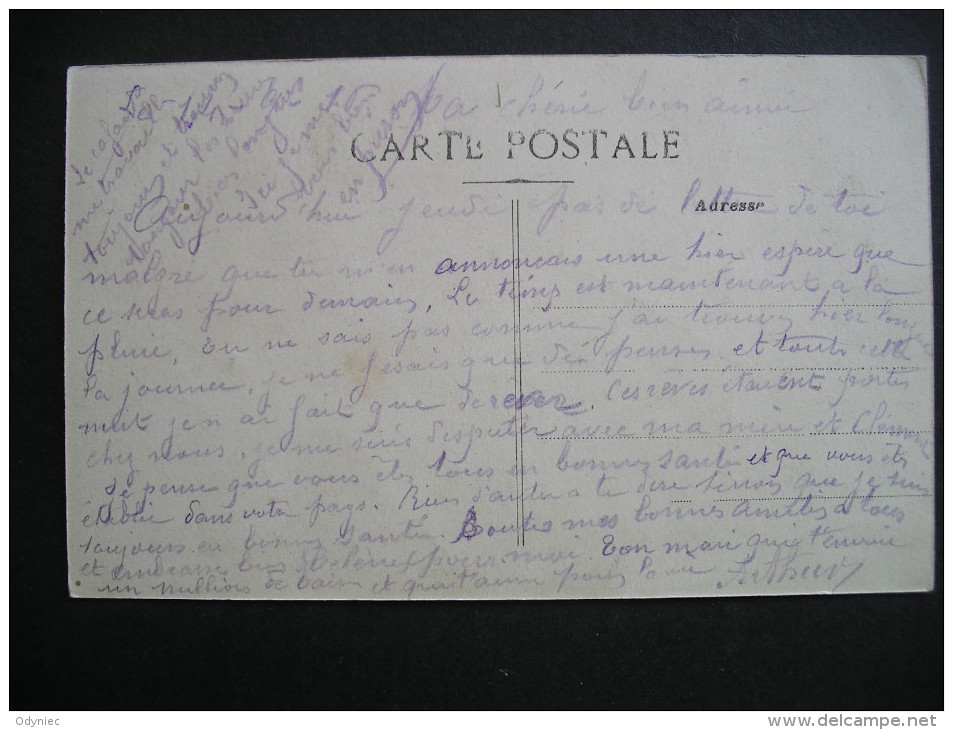 Ma chérie bien aimée
CARTE POSTALE
Adresse
Aujourd'hui jeudi pas de lettre de toi
malgre que tu m'en annoncais une hier espère que
ce seras pour demain. Le temps est maintenant a la
pluie, en ne sais pas comme j'ai trouvez hier longue
la journee, je ne fesais que dé penser et toute cette
nuit j'en ai fait que de rêver. Ces rêves étaient portes
chez nous, je me suis disputer avec ma mère et
Je pense que vous êtes tous en bonnes santé et que vous êtes
établie dans votre pays. Rien d'autre a te dire sinon que je suis
toujours en bonnes santé. Toutes mes bonnes amitiés a tous
et embrasse bien Hélène pour moi. Ton mari qui t'envoie
un millions de baisers et qui t'aime pour la vie Arthur
toujours et
Odyniec
www.delcampe.net